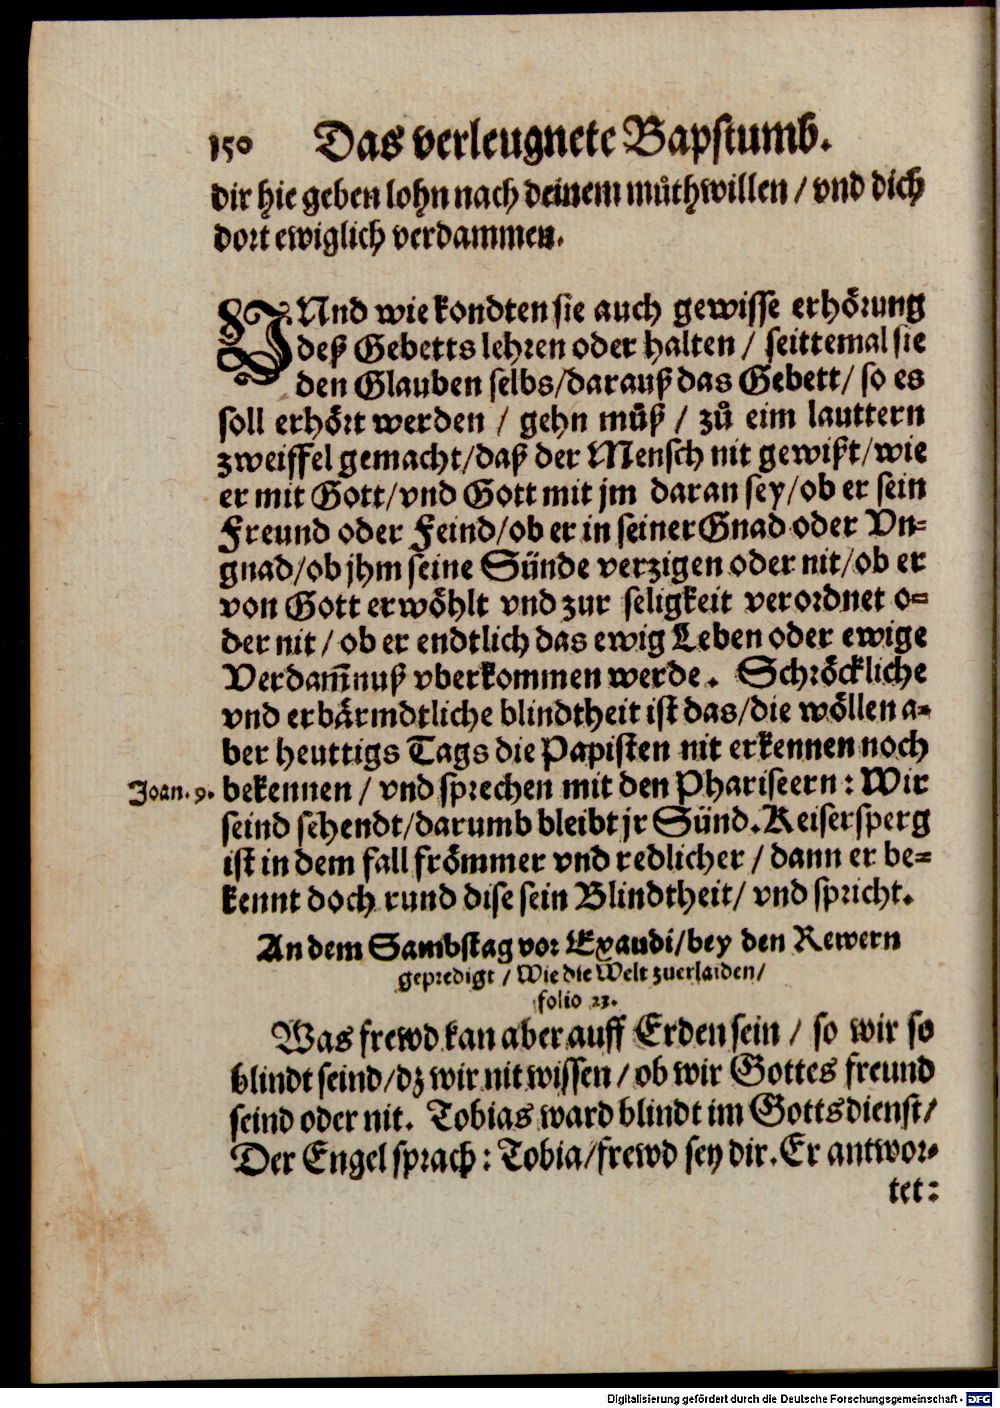 150 Das verleugnete Bapstumb.
dir hie geben lohn nach deinem můthwillen / vnd dich
dort ewiglich verdammen.
VNnd wie kondten sie auch gewisse erhörung
deß Gebetts lehren oder halten / seittemal sie
den Glauben selbs/darauß das Gebett/ so es
soll erhört werden / gehn můß / zů eim lauttern
zweiffel gemacht/daß der Mensch nit gewißt/wie
er mit Gott/vnd Gott mit jm daran sey/ob er sein
Freund oder Feind/ob er in seiner Gnad oder Vn-
gnad/ob jhm seine Sünde verzigen oder nit/ob er
von Gott erwöhlt vnd zur seligkeit verordnet o-
der nit / ob er endtlich das ewig Leben oder ewige
Verdam̃nuß vberkommen werde. Schröckliche
vnd erbärmdtliche blindtheit ist das/die wöllen a-
ber heuttigs Tags die Papisten nit erkennen noch
Joan. 9. bekennen / vnd sprechen mit den Phariseern: Wir
seind sehendt/darumb bleibt jr Sünd. Keisersperg
ist in dem fall frömmer vnd redlicher / dann er be-
kennt doch rund dise sein Blindtheit/ vnd spricht.
An dem Sambstag vor Exaudi/bey den Rewern
gepredigt / Wie die Welt zuerlaiden/
folio 23.
Was frewd kan aber auff Erden sein / so wir so
blindt seind/dz wir nit wissen / ob wir Gottes freund
seind oder nit. Tobias ward blindt im Gottsdienst/
Der Engel sprach: Tobia/frewd sey dir. Er antwor-
tet:
Digitalisierung gefördert durch die Deutsche Forschungsgemeinschaft - DFG